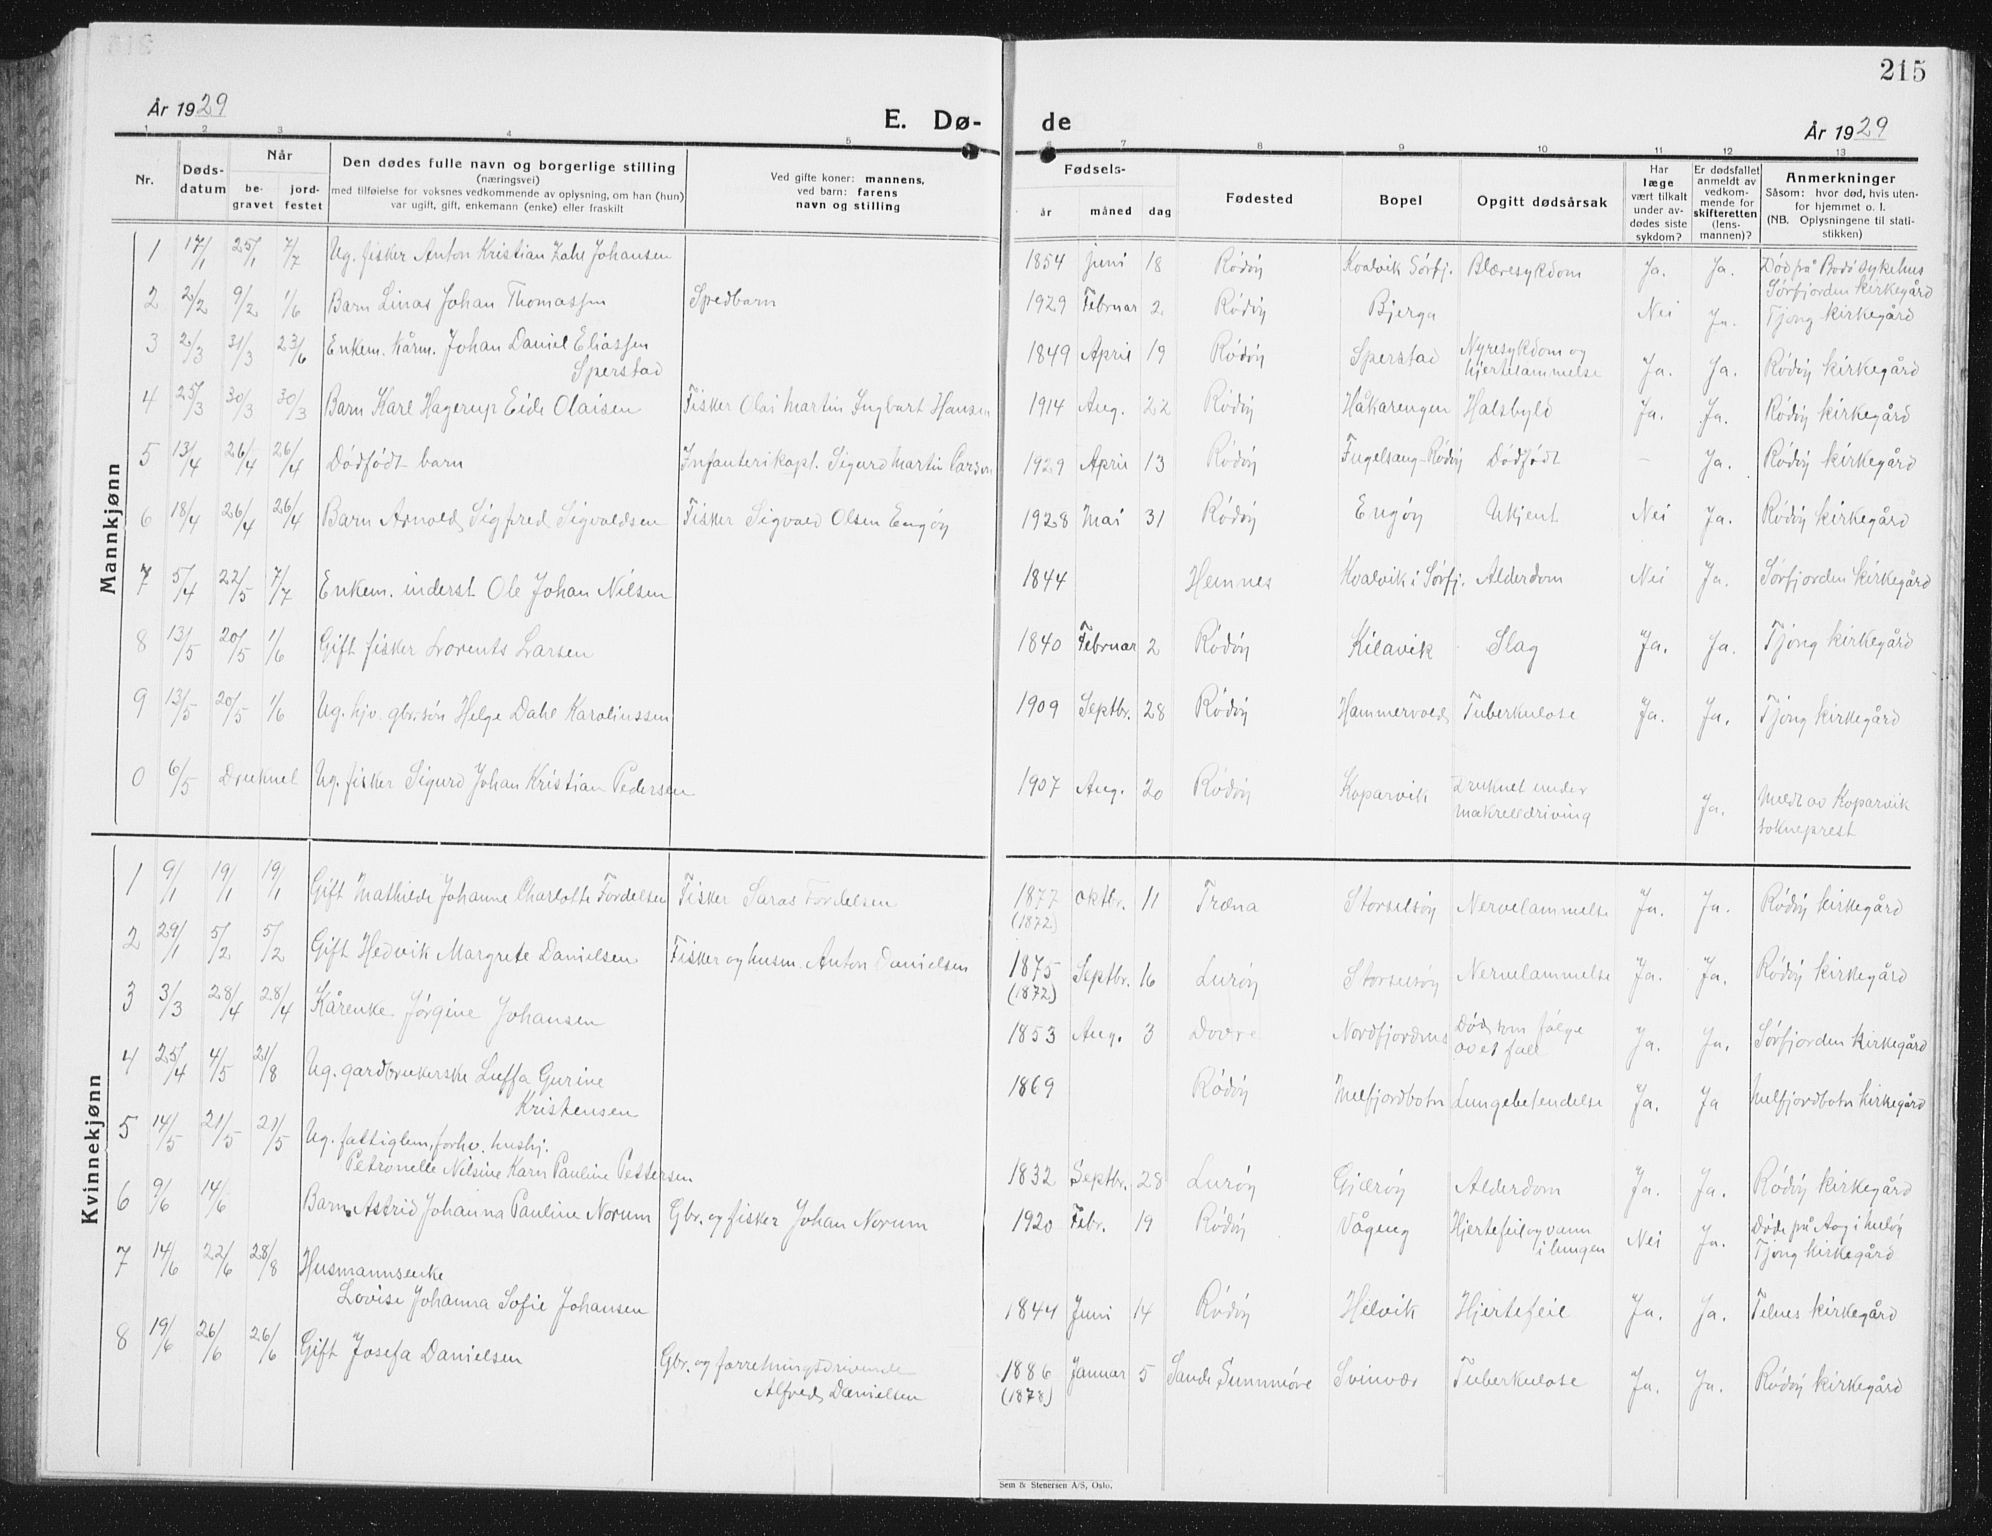 215
År 1929
E. Dø-
de
År 1929
1 2 3 4 5 6 7 8 9 10 11 12 13
Nr.
Døds-
datum
Når
be-
gravet
jord-
festet
Den dødes fulle navn og borgerlige stilling
(næringsvei)
med tilføielse for voksnes vedkommende av oplysning, om han (hun)
var ugift, gift, enkemann (enke) eller fraskilt
Ved gifte koner: mannens,
ved barn: farens
navn og stilling
Fødsels-
år
måned
dag
Fødested
Bopel
Opgitt dødsårsak
Har
læge
vært tilkalt
under av-
dødes siste
sykdom?
Er dødsfallet
anmeldt av
vedkom-
mende for
skifteretten
(lens-
mannen)?
Anmerkninger
Såsom: hvor død, hvis uten-
for hjemmet o. l.
(NB. Oplysningene til stati-
stikken)
Mannkjønn
1 17/1 25/1 7/7 Ug. fisker Anton Kristian Zahl Johansen 1854 Juni 18 Rödöy Kvalvik Sörfj. Blæresykdom Ja. Ja. Död på Bodö sykehus
Sørfjorden kirkegård
2 2/2 9/2 1/6 Barn Linas Johan Thomassen Spedbarn 1929 Februar 2 Rödöy Bjerga Nei Ja. Tjong kirkegård
3 2/3 31/3 23/6 Enkem. kårm. Johan Daniel Eliassen
Sperstad 1849 April 19 Rödöy Sperstad Nyresykdom og
hjertelammelse Ja. Ja. Rödöy kirkegård
4 25/3 30/3 30/3 Barn Karl Hagerup Eide Olaisen Fisker Olai Martin Ingbart Hansen 1914 Aug. 22 Rödöy Håkarengen Halsbyld Ja. Ja. Rödöy kirkegård
5 13/4 26/4 26/4 Dödfödt barn Infanterikapt. Sigurd Martin Larsen 1929 April 13 Rödöy Fugelsang-Rödöy Dödfödt - Ja. Rödöy kirkegård
6 18/4 26/4 26/4 Barn Arnold Sigfred Sigvaldsen Fisker Sigvald Olsen Engöy 1928 Mai 31 Rödöy Engöy Ukjent Nei Ja. Rödöy kirkegård
7 5/4 22/5 7/7 Enkem. inderst Ole Johan Nilsen 1844 Hemnes Kvalvik i Sörfj. Alderdom Nei Ja. Sörfjorden kirkegård
8 13/5 20/5 1/6 Gift fisker Lorents Larsen 1840 Februar 2 Rödöy Kilavik Slag Ja. Ja. Tjong kirkegård
9 13/5 20/5 1/6 Ug. hjv. gbr.sön Helge Dahl Karolinssen 1909 Septbr. 28 Rödöy Hammervold Tuberkulose Ja. Ja. Tjong kirkegård
0 6/5 Druknet Ug. fisker Sigurd Johan Kristian Pedersen 1907 Aug. 20 Rödöy Koparvik Druknet under
makrelldriving Ja. Meldt av Koparvik
sokneprest
Kvinnekjønn
1 9/1 19/1 19/1 Gift Mathilde Johanne Charlotte Fordelsen Fisker Saras Fordelsen 1877
(1872) Oktbr. 11 Træna Storselsöy Nervelammelse Ja. Ja. Rödöy kirkegård
2 29/1 5/2 5/2 Gift Hedvik Margrete Danielsen Fisker og husm. Anton Danielsen 1875
(1872) Septbr. 16 Luröy Storselsöy Nervelammelse Ja. Ja. Rödöy kirkegård
3 3/3 28/4 28/4 Kårenke Jörgine Johansen 1853 Aug. 3 Dovre Nordfjordnes Död som fölge
av et fall Ja. Ja. Sörfjorden kirkegård
4 25/4 4/5 21/8 Ug. gardbrukerske Luffa Gurine
Kristensen 1869 Rödöy Melfjordbotn Lungebetendelse Ja. Ja Melfjordbotn kirkegård
5 14/5 21/5 21/5 Ug. fattiglem, forhv. hushj.
Petronelle Nilsine Karn Pauline Pettersen 1832 Septbr. 28 Luröy Gjeröy Alderdom Ja. Ja. Rödöy kirkegård
6 9/6 14/6 Barn Astrid Johanna Pauline Norum Gbr. og fisker Johan Norum 1920 Febr. 19 Rödöy Vågeng Hjertefeil og vann
i lungen Nei Ja. Döde på i Melöy
Tjong kirkegård
7 14/6 22/6 28/8 Husmannsenke
Lovise Johanna Sofie Johansen 1844 Juni 14 Rödöy Helvik Hjertefeil Ja. Ja. Telnes kirkegård
8 19/6 26/6 26/6 Gift Josefa Danielsen Gbr. og forretningsdrivende
Alfred Danielsen 1886
(1878) Januar 5 Sande Sunnmöre Svinvær Tuberkulose Ja. Ja. Rödöy kirkegård
Sem & Stenersen A/S, Oslo.